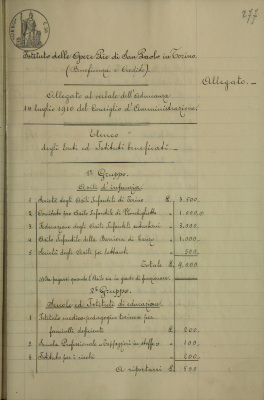 277
Istituto delle Opere Pie di San Paolo in Torino.
(Beneficenza e Credito).
Allegato.
Allegato al verbale dell'adunanza
luglio 1910 del Consiglio d'Amministrazione.
Elenco
degli Enti ed Istituti beneficati.
1° Gruppo.
Asili d'infanzia
1 Società degli Asili Infantili di Torino £. 3.500,
2 Comitato per Asilo Infantile di 1.000,
3 Federazione degli Asili Infantili suburbani
4 Asilo Infantile della Barriera di Nizza 1.000,
5 Società degli Asili per lattanti 500,
Totale £. 9.000
2° Gruppo.
Scuole ed Istituti di educazione
1 Istituto medico-pedagogico torinese per
fanciulli deficienti £. 200,
2 Scuola Professionale 100,
3 Istituto per i ciechi 200,
A riportarsi £. 500